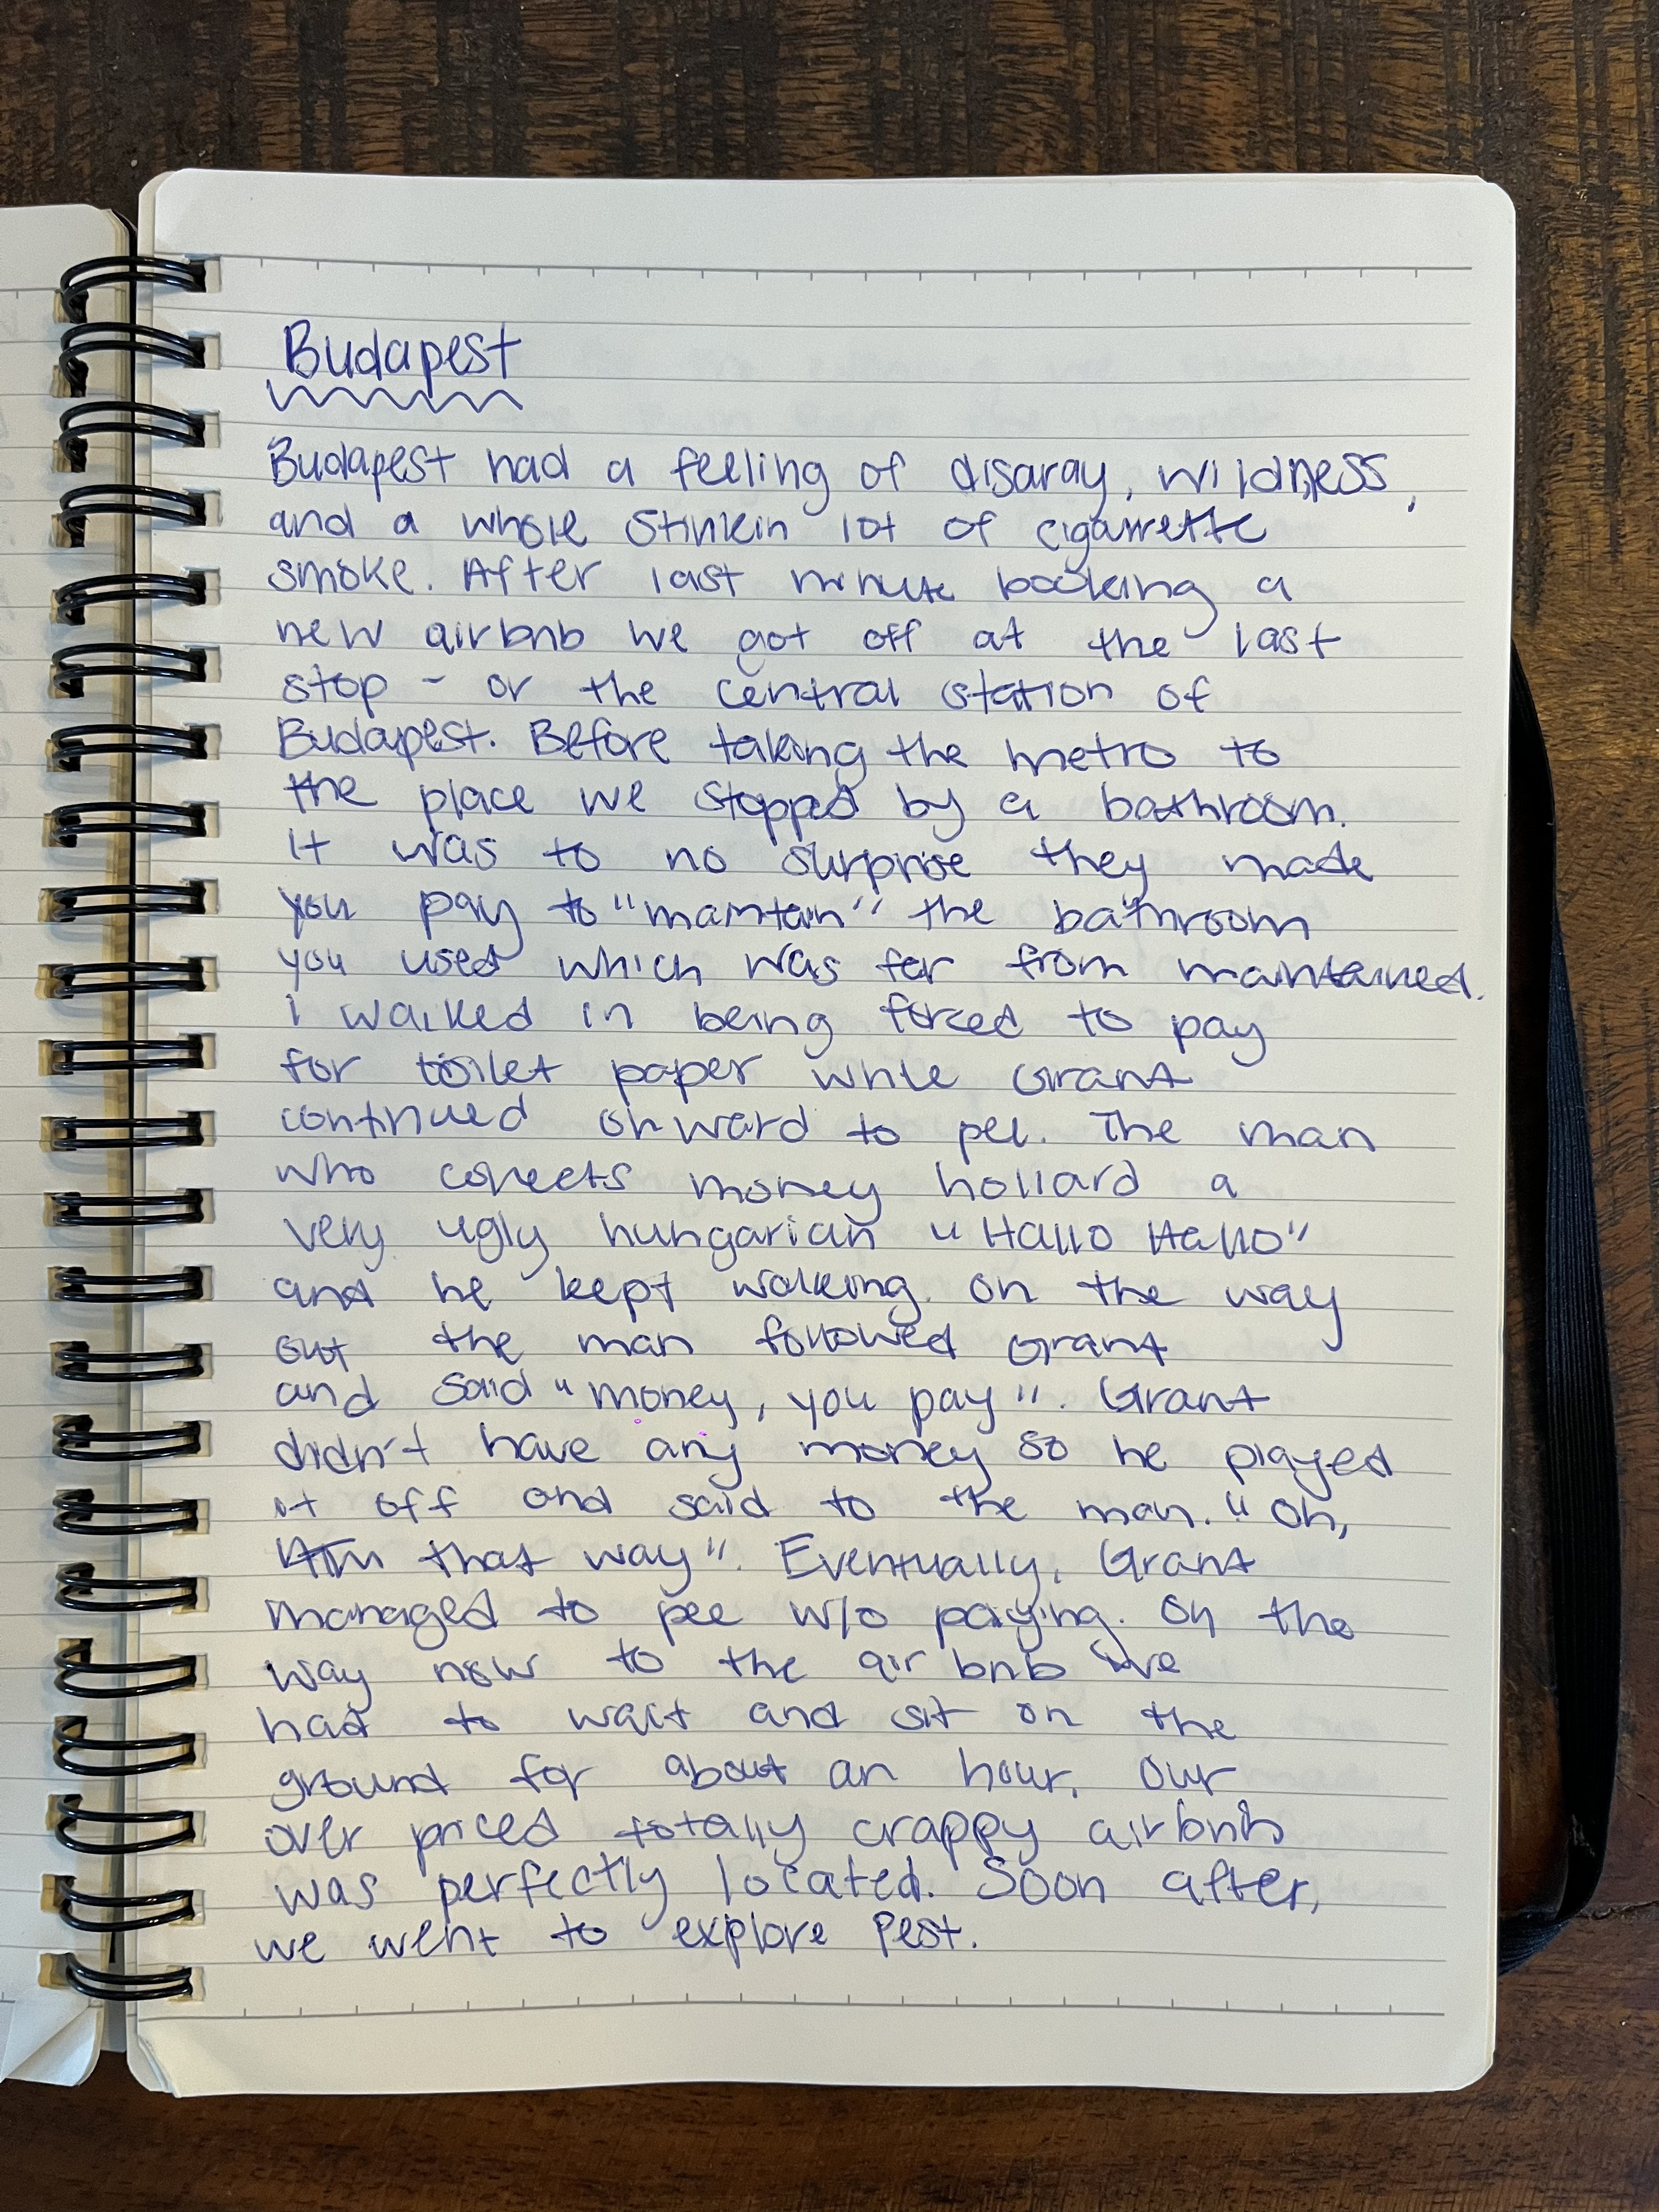 Budapest
Budapest had a feeling of disaray, wildness,
and a whole stinkin lot of cigarrette
smoke. After last minute booking a
new airbnb we got off at the last
stop - or the central station of
Budapest. Before taking the metro to
the place we stopped by a bathroom.
It was to no surprise they made
you pay to "maintain" the bathroom
you used which was far from maintained.
I walked in being forced to pay
for toilet paper while Grant
continued onward to pee. The man
who collects money hollard a
very ugly hungarian "Hallo Hallo"
and he kept walking. On the way
out the man followed Grant
and said "money, you pay". Grant
didn't have any money so he played
it off and said to the man. "Oh,
ATM that way". Eventually, Grant
managed to pee w/o paying. On the
way now to the air bnb we
had to wait and sit on the
ground for about an hour. Our
over priced totally crappy airbnb
was perfectly located. Soon after,
we went to explore Pest.